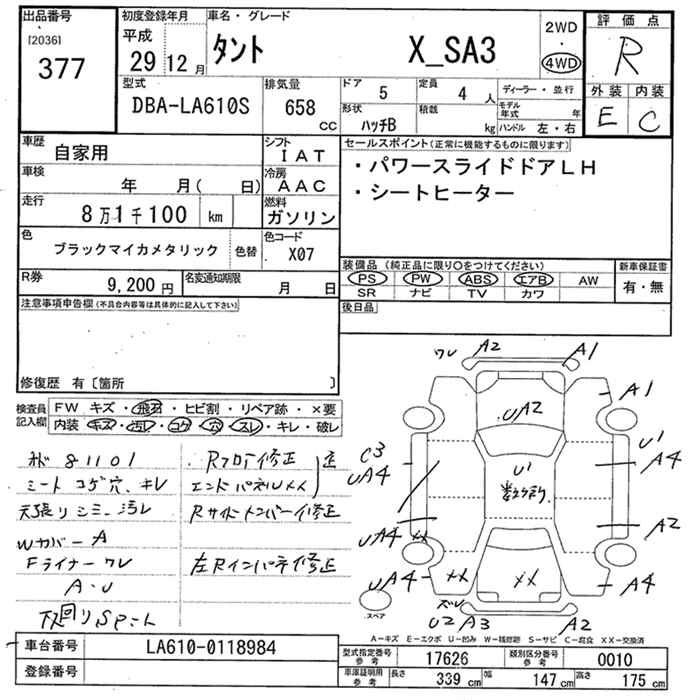 出品番号
[2036]
377
初度登録年月
平成
29 12 月
車名・グレード
タント X_SA3
2WD
・
4WD
評価点
R
外装 内装
E C
型式
DBA-LA610S
排気量
658 cc
ドア 5
定員 4 人
ディーラー・並行
形状 ハッチB
積載 kg
モデル年式 年
ハンドル 左・右
車歴
自家用
シフト
IAT
車検
年 月( 日)
冷房
AAC
走行
8万1千100 km
燃料
ガソリン
色
ブラックマイカメタリック
色替
色コード
X07
R券
9,200 円
名変通知期限
月 日
セールスポイント(正常に機能するものに限ります)
・パワースライドドアLH
・シートヒーター
装備品(純正品に限り○をつけてください)
PS PW ABS エアB AW
SR ナビ TV カワ
新車保証書
有・無
後日品
注意事項申告欄(不具合内容等は具体的に記入して下さい)
修復歴 有〔箇所 〕
検査員記入欄
FW キズ・飛石・ヒビ割・リペア跡・×要
内装 キズ・汚レ・コゲ・穴・スレ・キレ・破レ
81101
シート コゲ穴、キレ
天張リシミ、汚レ
Wカバー A
Fライナー ワレ
A・U
下回リSPナシ
Rフロア修正
エンドパネルXX
Rサイドメンバー修正
左Rインパネ修正
ワレ A2 A1
UA2
A1
C3
UA4
U1
U1
A4
UA4 XX
A2
UA4 XX XX
A4
ズレ
U2 A3 A2
スペア
A-キズ E-エクボ U-凹み W-補修跡 S-サビ C-腐食 XX-交換済
車台番号
LA610-0118984
登録番号
型式指定番号 参考
17626
類別区分番号 参考
0010
車庫証明用 参考
長さ 339 cm
幅 147 cm
高さ 175 cm